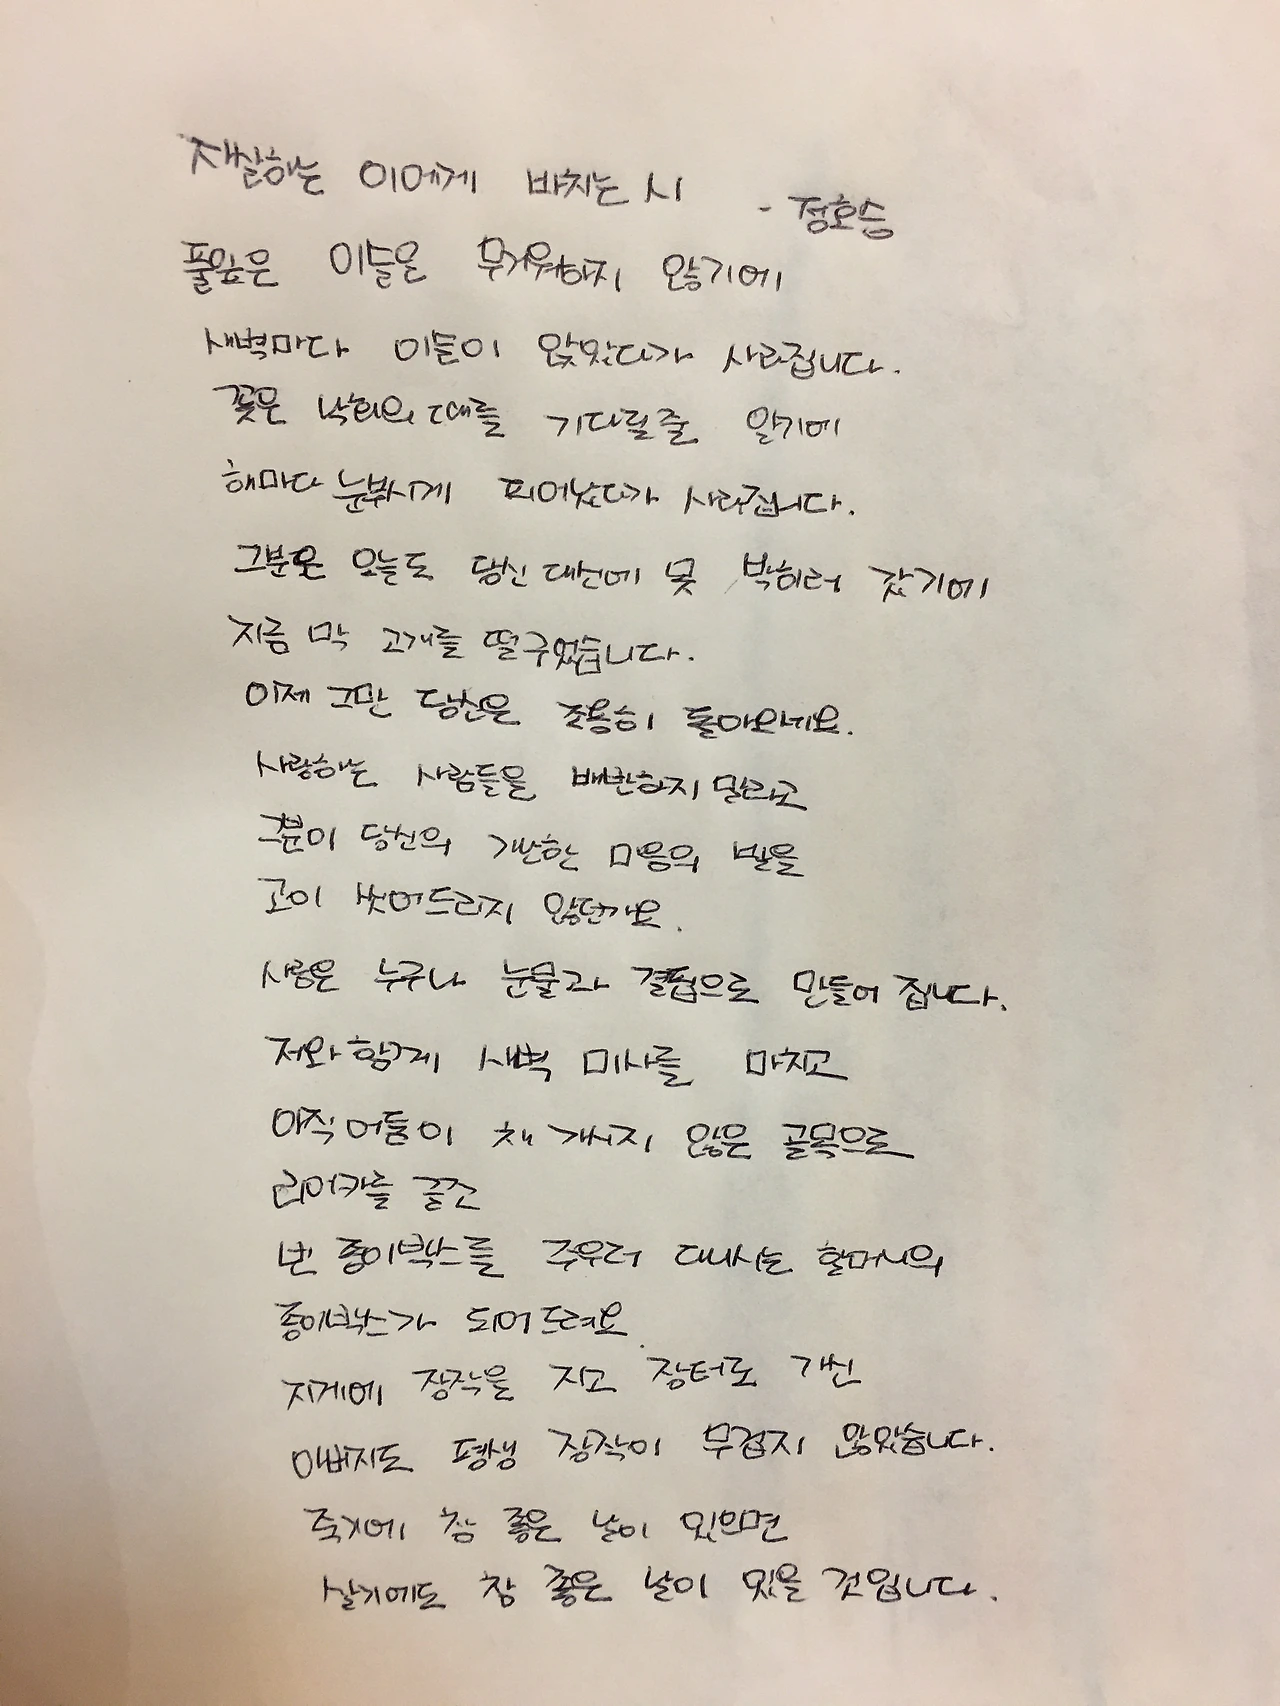 자살하는 이에게 바치는 시 - 정호승
풀잎은 이슬은 무거워하지 않기에
새벽마다 이슬이 앉았다가 사라집니다.
꽃은 낙화의 때를 기다릴줄 알기에
해마다 눈부시게 피어났다가 사라집니다.
그분은 오늘도 당신 대신에 못 박히러 갔기에
지금 막 고개를 떨구었습니다.
이제 그만 당신은 조용히 돌아오세요.
사랑하는 사람들을 배반하지 말라고
그분이 당신의 가난한 마음의 발을
고이 씻어드리지 않던가요.
사랑은 누구나 눈물과 결핍으로 만들어 집니다.
저와 함께 새벽 미사를 마치고
아직 어둠이 채 가시지 않은 골목으로
리어카를 끌고
빈 종이박스를 주우러 다니시는 할머니의
종이박스가 되어드려요.
지게에 장작을 지고 장터로 가신
아버지도 평생 장작이 무겁지 않았습니다.
죽기에 참 좋은 날이 있으면
살기에도 참 좋은 날이 있을 것입니다.